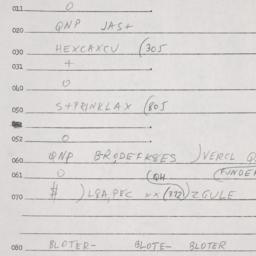 011 O
020 QNP JAS+
030 HEXCAXCU (305
031 +
040 O
050 S+PRINKLAX (805
052 O
060 QNP BRODEFKBES )VERCL
061 O (QH (FUNDE
070 $ )L8A,PEC xx (772) ZGULE
080 BLOTER- BLOTE- BLOTER